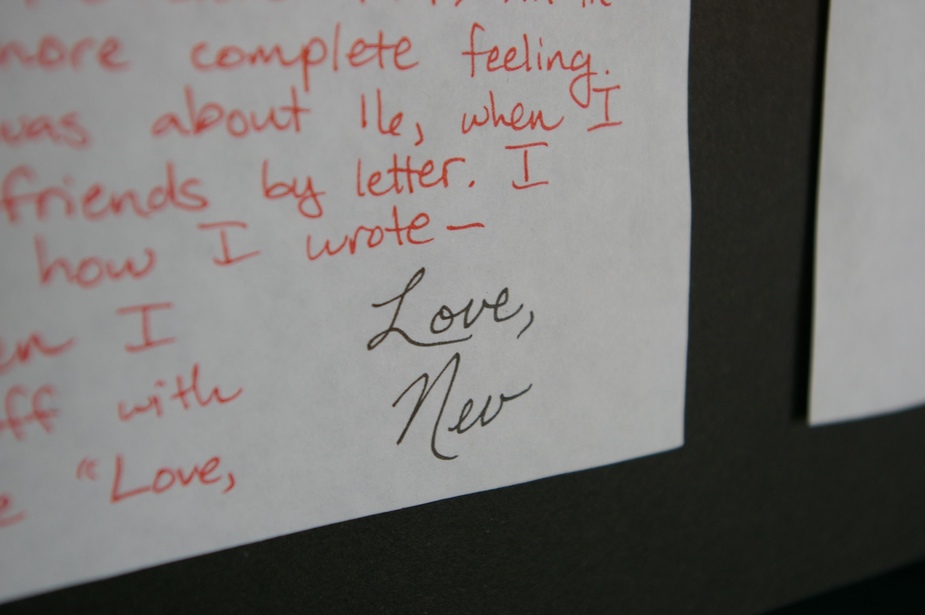 more complete feeling.
was about 16, when I
friends by letter. I
how I wrote—
en I
off with
"Love,
Love,
Nev